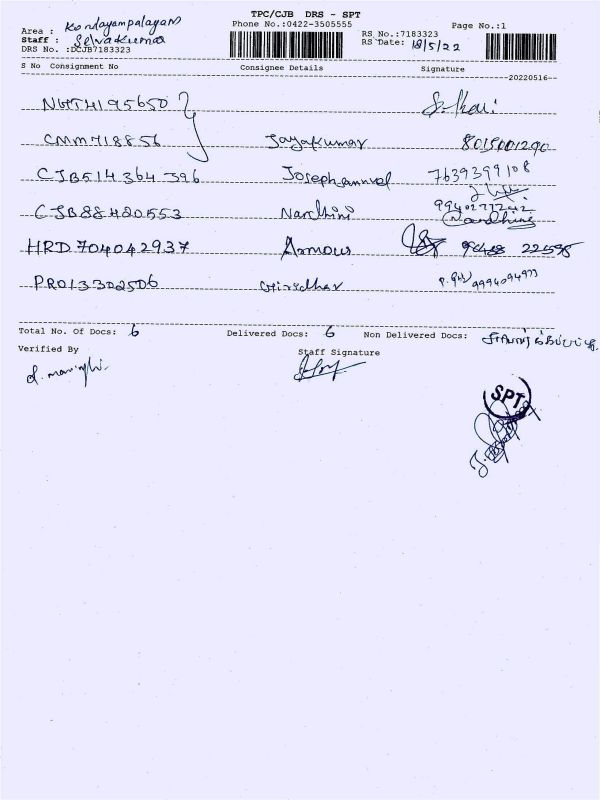 TPC/CJB DRS - SPT
Area : Kondayampalayam Phone No.:0422-3505555 Page No.:1
Staff : Selvakumar RS No.:7183323
DRS No. :DCJB7183323 RS Date: 18/5/22
S No Consignment No Consignee Details Signature
20220516
NWTH195650
CMM718856 Jayakumar 8015001290
CJB514364396 Josephammal 7639399108
9940277242
CJB88420553 Nandhini Nandhini
HRD704042937 Armous 22595
PRO13302506 Giridhar 9994094973
Total No. Of Docs: 6 Delivered Docs: 6 Non Delivered Docs:
Verified By Staff Signature
SPT